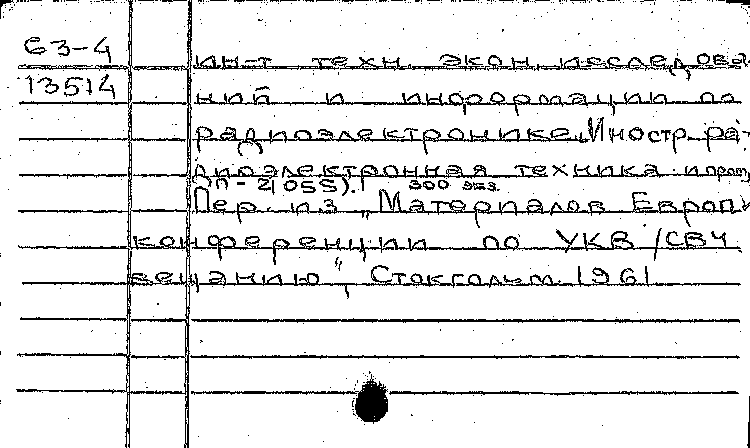 63-4
13514
ин-т техн. экон. исследова
ний и информации по
радиоэлектронике. „Иностр. ра-
диоэлектронная техника и пром.
(ДП-21055). 300 экз.
Пер. из „Материалов Европ.
конференции по УКВ/СВЧ
вещанию“, Стокгольм 1961